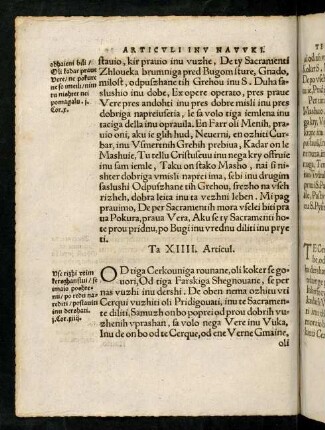 ARTICVLI INV NAVVKI.
obhaieni bili /
Oli kadar praue
Vere / ne pokure
ne so imeili, nim
tu nishter nei
pomagalu. j.
Cor. x.
stauio, kir prauio inu vuzhe, De ty Sacramenti
Zhloueka brumniga pred Bugom sture, Gnado,
milost, odpuszhane tih Grehou inu S. Duha sa-
slushio inu dobe, Ex opere operato, pres praue
Vere pres andohti inu pres dobre misli inu pres
dobriga napreiuseta, le sa volo tiga iemlena inu
taciga della inu oprauila. En Far oli Menih, pra-
uio oni, aku ie glih hud, Neuerni, en ozhiti Cur-
bar, inu Vsmertnih Grehih prebiua, Kadar on le
Mashuie, Tu tellu Cristuseuu inu nega kry offruie
inu sam iemle, Taku on stako Masho, nai si nish-
ter dobriga vmisli naprei ima, sebi inu drugim
saslushi Odpuszhane tih Grehou, srezho na vseh
rizheh, dobra leica inu ta vezhni leben. Mi pag
prauimo, De per Sacramentih mora vselei biti pra-
ua Pokura, praua Vera, Aku se ty Sacramenti ho-
te prou pridnu, po Bugi inu vrednu diliti inu pry-
eti.
Ta XIIII. Articul.
Vse rizhi vcim
kerszhanstui / se
imaio poszhte-
nu / po redu na-
rediti / postauiti
inu dershati.
j. Cor. xiiij.
OD tiga Cerkouniga rounane, oli koker se go-
uori, Od tiga Farskiga Shegnouane, se per
nas vuzhi inu dershi. De oben nema ozhitu vti
Cerqui vuzhiti oli Pridigouati, inu te Sacramen-
te diliti, Samuzh on bo poprei od prou dobrih vu-
zhenih vprashan, sa volo nega Vere inu Vuka,
Inu de on bo od te Cerque, od ene Verne Gmaine,
oli